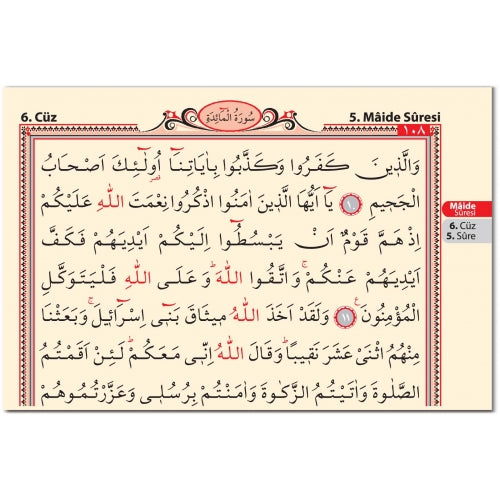 6. Cüz
سُورَةُ الْمَائِدَةِ
5. Mâide Sûresi
١٠٨
وَالَّذ۪ينَ كَفَرُوا وَكَذَّبُوا بِاٰيَاتِنَٓا اُو۬لٰٓئِكَ اَصْحَابُ
الْجَح۪يمِ ﴿١٠﴾ يَٓا اَيُّهَا الَّذ۪ينَ اٰمَنُوا اذْكُرُوا نِعْمَتَ اللّٰهِ عَلَيْكُمْ
اِذْ هَمَّ قَوْمٌ اَنْ يَبْسُطُٓوا اِلَيْكُمْ اَيْدِيَهُمْ فَكَفَّ
اَيْدِيَهُمْ عَنْكُمْۚ وَاتَّقُوا اللّٰهَۜ وَعَلَى اللّٰهِ فَلْيَتَوَكَّلِ
الْمُؤْمِنُونَ۟ ﴿١١﴾ وَلَقَدْ اَخَذَ اللّٰهُ م۪يثَاقَ بَن۪ٓي اِسْرَٓائ۪لَۚ وَبَعَثْنَا
مِنْهُمُ اثْنَيْ عَشَرَ نَق۪يباًۜ وَقَالَ اللّٰهُ اِنّ۪ي مَعَكُمْۜ لَئِنْ اَقَمْتُمُ
الصَّلٰوةَ وَاٰتَيْتُمُ الزَّكٰوةَ وَاٰمَنْتُمْ بِرُسُل۪ي وَعَزَّرْتُمُوهُمْ
Mâide
Sûresi
6. Cüz
5. Sûre